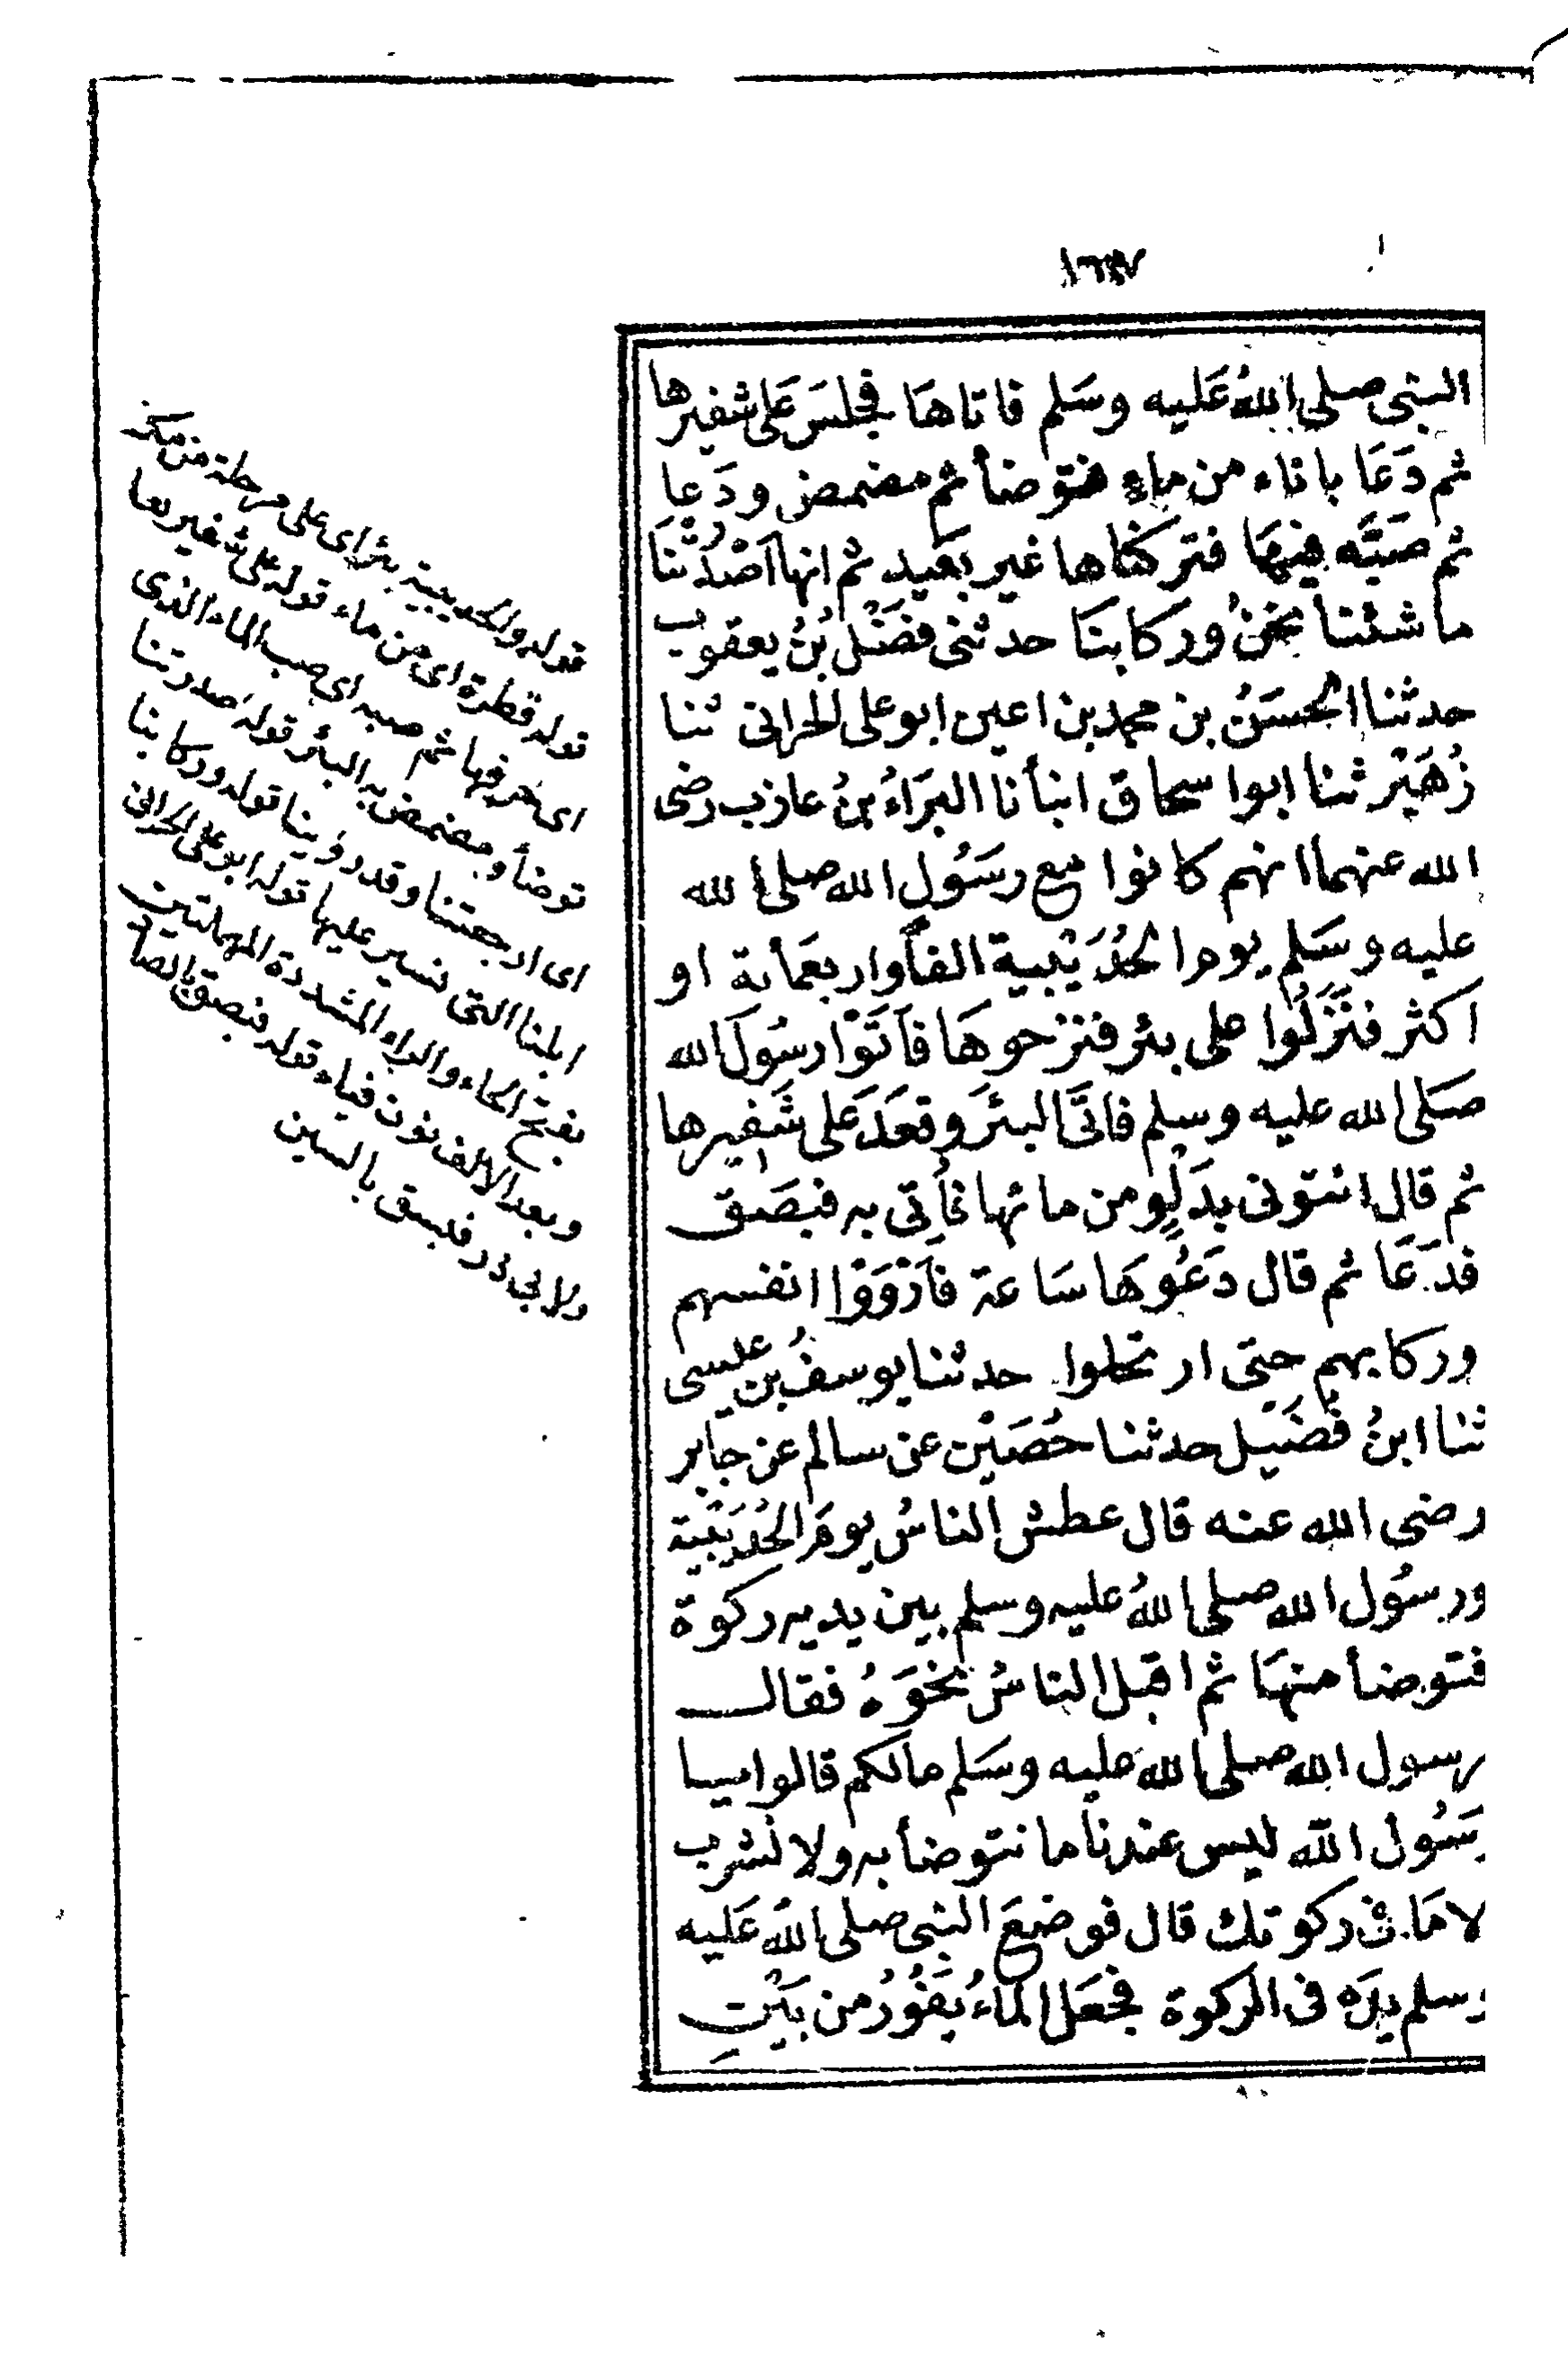 النبي صلى اللهُ عَليه وسَلم فاتاهَا فجلسَ عَلى شفيرها
ثم دَعَا باناء من ماءٍ فتوضأ ثم مضمض ودَعا
ثم صَبَّه فيهَا فتركناها غير بعَيد ثم انها اَصْدَرُتْنَا
ما شئنا نحنُ وركابنَا حدثنى فضَلْ بْنُ يعقوب
حدثنا الحسَنُ بن محمد بن اعين ابو على الحرانى ثنا
زُهَيْر ثنا ابوا سحاق انبأنا البَرَاءُ بنُ عازب رضى
الله عنهما انهم كانوا مع رسَوُل الله صلى الله
عليه وسَلم يوم الحُدَيْبية الفاً واربعَمائة او
اكثر فنَزَلُوا على بئر فنزحوهَا فاَتَوْا رسُولَ الله
صَلى الله عليه وسلم فاتَى البئرَ وقعَدَ عَلى شَفيرها
ثم قال ائتونى بدَلْوٍ من مائها فأتي به فبصَق
فدَعَا ثم قال دَعُوهَا سَاعة فاَرْوَوْا انفسهم
وركابهم حتى ارتحلوا حدثنا يوسفُ بن عيسى
ثنا ابنُ فُضَيْل حدثنا حُصَيْن عن سالم عن جابر
رضى الله عنه قال عطش الناسُ يومَ الحُدَيْبية
ورسُول الله صلى اللهُ عليه وسلم بين يديه ركوة
فتوضأ منهَا ثم اقبل الناسُ نحْوَهُ فقال
رسول الله صلى الله عليه وسَلم مالكم قالوا يا
رسَُول الله ليس عندنا ما نتوضأ به ولا نشرب
لا مَا فى ركوتك قال فوضعَ النبى صلى اللهُ عَليه
وسلم يدَه فى الركوة فجعَل الماءُ يَفُوُرُ من بَيْنِ
قوله والحديبية بئر اى على مرحلة من مكة
قوله قطرة اى من ماء قوله على شفيرها
اى حرفها ثم صبه اى صب الماء الذى
توضأ ومضمض به البئر قوله اصدرتنا
اى ارجعتنا وقد روينا قوله وركابنا
ابلنا التى نسير عليها قوله ابو على الحرانى
بفتح الحاء والراء المشددة المهملتين
وبعد الالف نون فياء قوله فبصق بالصاد
ولابي ذر فبسق بالسين